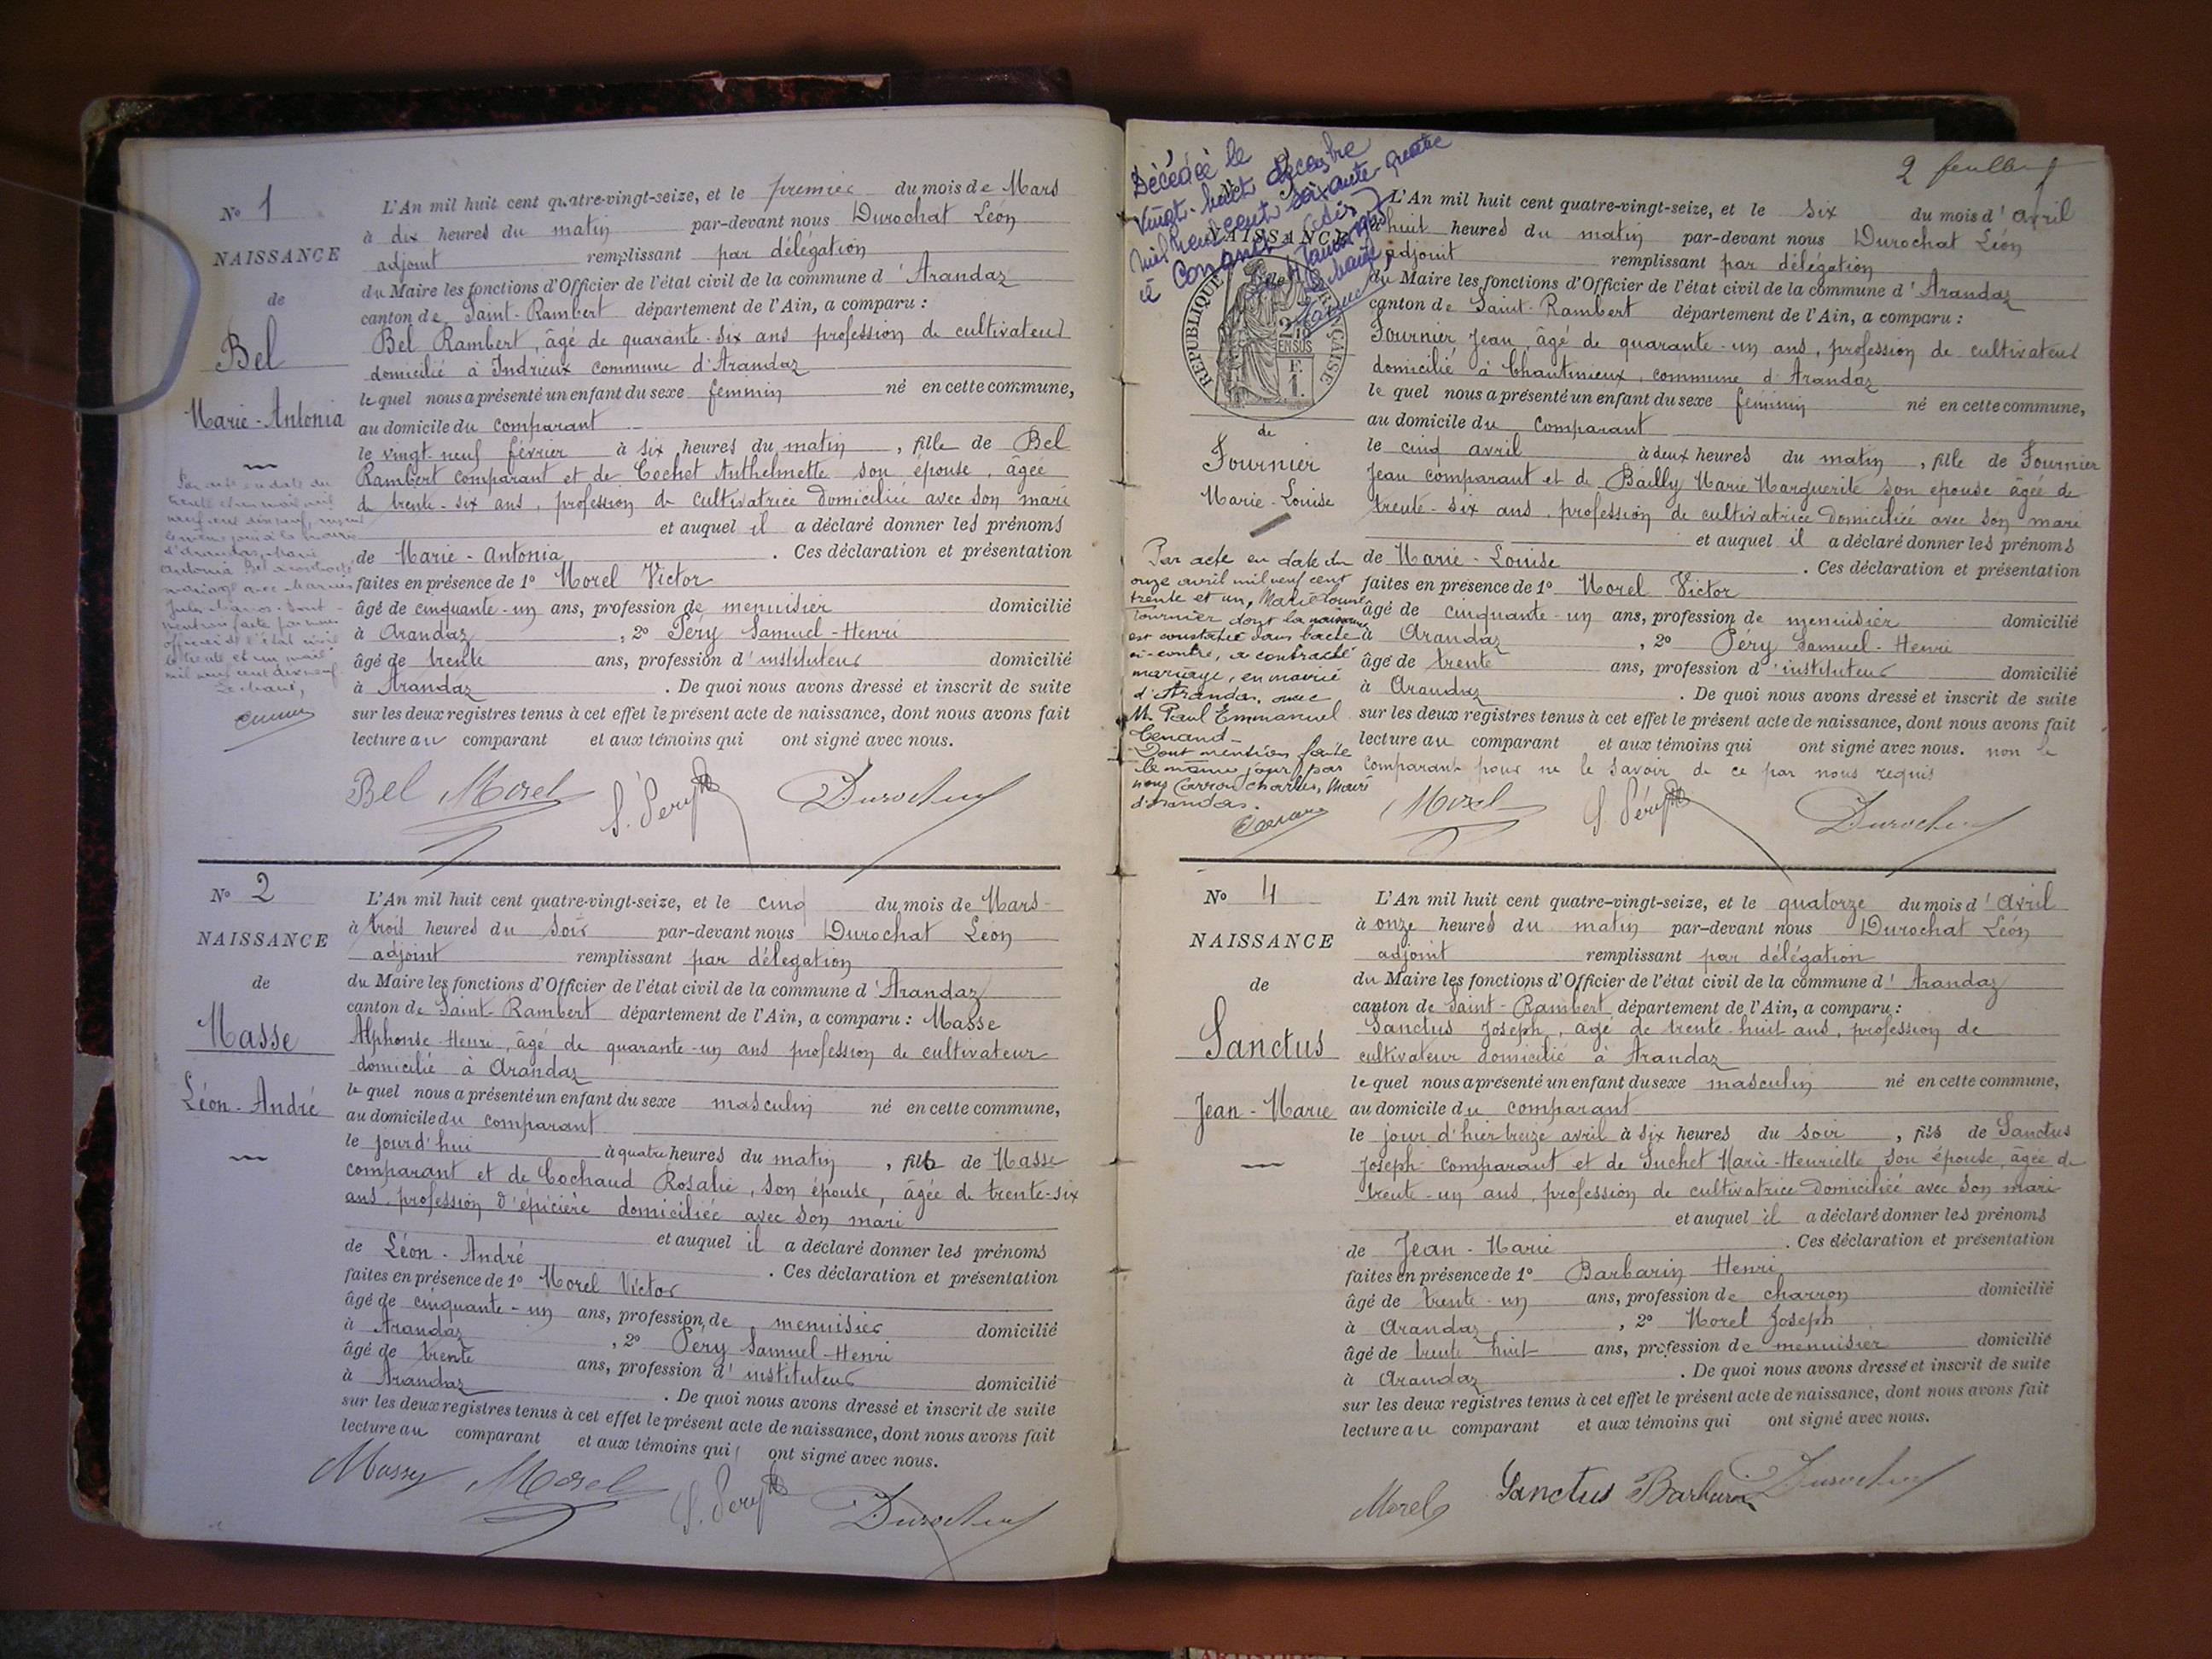 Nº 1
NAISSANCE
de
Bel
Marie-Antonia
L'An mil huit cent quatre-vingt-seize, et le premier du mois de Mars
à dix heures du matin par-devant nous Durochat Léon
adjoint remplissant par délégation
du Maire les fonctions d'Officier de l'état civil de la commune d'Arandaz
canton de Saint-Rambert département de l'Ain, a comparu :
Bel Rambert, âgé de quarante-six ans profession de cultivateur
domicilié à Indrieux commune d'Arandaz
lequel nous a présenté un enfant du sexe féminin né en cette commune,
au domicile du comparant
le vingt-neuf février à six heures du matin, fille de Bel
Rambert comparant et de Cochet Anthelmette son épouse, âgée
de trente-six ans, profession de cultivatrice domiciliée avec son mari
et auquel il a déclaré donner les prénoms
de Marie-Antonia. Ces déclaration et présentation
faites en présence de 1º Morel Victor
âgé de cinquante-un ans, profession de menuisier domicilié
à Arandaz, 2º Péry Samuel-Henri
âgé de trente ans, profession d'instituteur domicilié
à Arandaz. De quoi nous avons dressé et inscrit de suite
sur les deux registres tenus à cet effet le présent acte de naissance, dont nous avons fait
lecture au comparant et aux témoins qui ont signé avec nous.
Bel Morel S. Péry Durochat
Par acte en date du
trente et un mai mil
neuf cent dix neuf,
d'Arandas, Marie
Antonia Bel a contracté
mariage avec
mention faite par nous
officier de l'état civil
le trente et un mai
mil neuf cent dix neuf
Le maire,
Nº 2
NAISSANCE
de
Masse
Léon-André
L'An mil huit cent quatre-vingt-seize, et le cinq du mois de Mars
à trois heures du soir par-devant nous Durochat Léon
adjoint remplissant par délégation
du Maire les fonctions d'Officier de l'état civil de la commune d'Arandaz
canton de Saint-Rambert département de l'Ain, a comparu : Masse
Alphonse-Henri, âgé de quarante-un ans profession de cultivateur
domicilié à Arandaz
lequel nous a présenté un enfant du sexe masculin né en cette commune,
au domicile du comparant
le jourd'hui à quatre heures du matin, fils de Masse
comparant et de Cochaud Rosalie, son épouse, âgée de trente-six
ans, profession d'épicière domiciliée avec son mari
et auquel il a déclaré donner les prénoms
de Léon-André. Ces déclaration et présentation
faites en présence de 1º Morel Victor
âgé de cinquante-un ans, profession de menuisier domicilié
à Arandaz, 2º Péry Samuel-Henri
âgé de trente ans, profession d'instituteur domicilié
à Arandaz. De quoi nous avons dressé et inscrit de suite
sur les deux registres tenus à cet effet le présent acte de naissance, dont nous avons fait
lecture au comparant et aux témoins qui ont signé avec nous.
Masse Morel S. Péry Durochat
2 feuillet
Décédée le
vingt-huit décembre
mil neuf cent soixante-quatre
à
NAISSANCE
RÉPUBLIQUE FRANÇAISE
2/10 EN SUS
F.
1.
de
Fournier
Marie-Louise
L'An mil huit cent quatre-vingt-seize, et le six du mois d'avril
à huit heures du matin par-devant nous Durochat Léon
adjoint remplissant par délégation
du Maire les fonctions d'Officier de l'état civil de la commune d'Arandaz
canton de Saint-Rambert département de l'Ain, a comparu :
Fournier Jean, âgé de quarante-un ans, profession de cultivateur
domicilié à Chantinieux, commune d'Arandaz
lequel nous a présenté un enfant du sexe féminin né en cette commune,
au domicile du comparant
le cinq avril à deux heures du matin, fille de Fournier
Jean comparant et de Bailly Marie Marguerite son épouse âgée de
trente-six ans, profession de cultivatrice domiciliée avec son mari
et auquel il a déclaré donner les prénoms
de Marie-Louise. Ces déclaration et présentation
faites en présence de 1º Morel Victor
âgé de cinquante-un ans, profession de menuisier domicilié
à Arandaz, 2º Péry Samuel-Henri
âgé de trente ans, profession d'instituteur domicilié
à Arandaz. De quoi nous avons dressé et inscrit de suite
sur les deux registres tenus à cet effet le présent acte de naissance, dont nous avons fait
lecture au comparant et aux témoins qui ont signé avec nous. non le
comparant pour ne le savoir de ce par nous requis
Morel S. Péry Durochat
Par acte en date du
onze avril mil neuf cent
trente et un, Marie Louise
Fournier dont la naissance
est constatée dans l'acte
ci-contre, a contracté
mariage, en mairie
d'Arandas, avec
M. Paul Emmanuel
Tenand
Dont mention faite
le même jour par
nous Carron Charles, Maire
d'Arandas.
Nº 4
NAISSANCE
de
Sanctus
Jean-Marie
L'An mil huit cent quatre-vingt-seize, et le quatorze du mois d'Avril
à onze heures du matin par-devant nous Durochat Léon
adjoint remplissant par délégation
du Maire les fonctions d'Officier de l'état civil de la commune d'Arandaz
canton de Saint-Rambert département de l'Ain, a comparu :
Sanctus Joseph, âgé de trente-huit ans, profession de
cultivateur domicilié à Arandaz
lequel nous a présenté un enfant du sexe masculin né en cette commune,
au domicile du comparant
le jour d'hier treize avril à six heures du soir, fils de Sanctus
Joseph comparant et de Suchet Marie-Henriette son épouse, âgée de
trente-un ans, profession de cultivatrice domiciliée avec son mari
et auquel il a déclaré donner les prénoms
de Jean-Marie. Ces déclaration et présentation
faites en présence de 1º Barbarin Henri
âgé de trente-un ans, profession de charron domicilié
à Arandaz, 2º Morel Joseph
âgé de trente huit ans, profession de menuisier domicilié
à Arandaz. De quoi nous avons dressé et inscrit de suite
sur les deux registres tenus à cet effet le présent acte de naissance, dont nous avons fait
lecture au comparant et aux témoins qui ont signé avec nous.
Morel Sanctus Barbarin Durochat